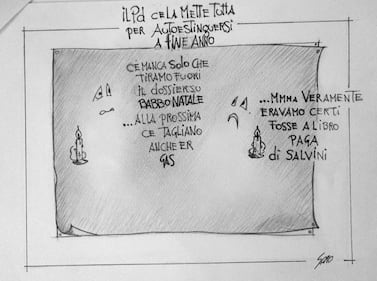 il Pd ce la mette tutta
per autoestinguersi
a fine anno
ce manca solo che
tiramo fuori
il dossier su
Babbo Natale
...alla prossima
ce tagliano
anche er
gas
...mmha veramente
eravamo certi
fosse a libro
paga
di Salvini